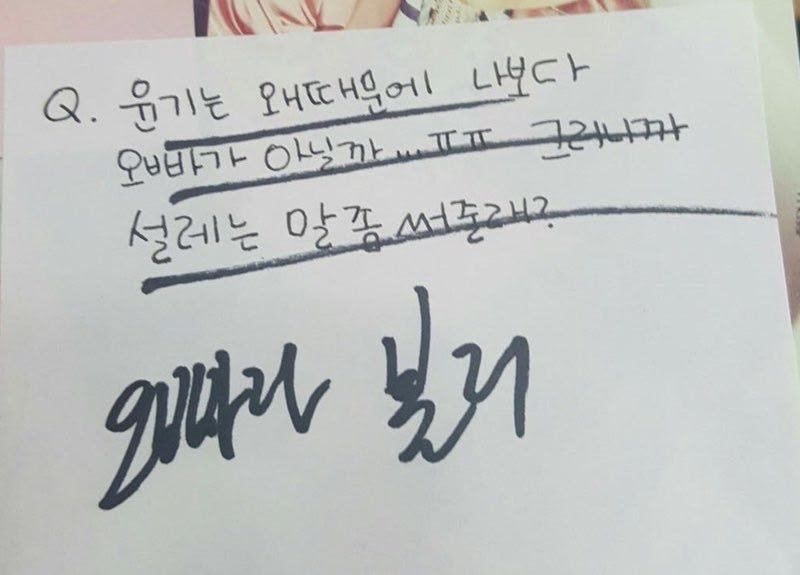 Q. 윤기는 왜때문에 나보다
오빠가 아닐까...ㅠㅠ 그러니까
설레는 말 좀 써줄래?
오빠라 불러